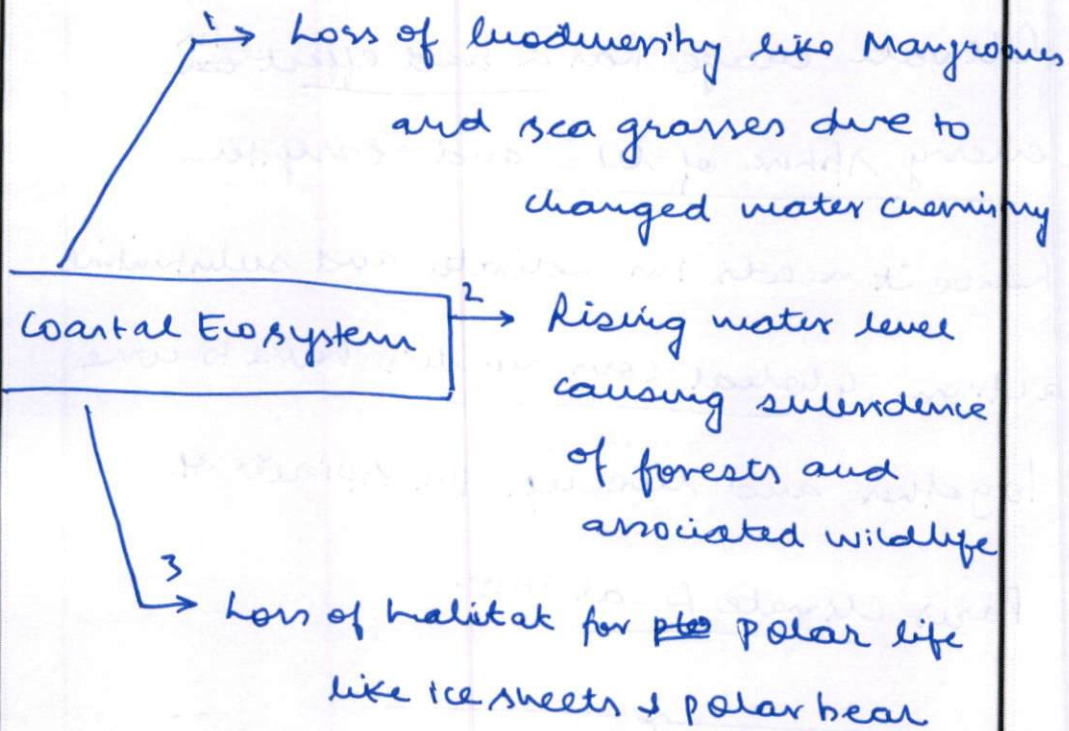 1 Loss of biodiversity like Mangroves
and sea grasses due to
changed water chemistry
Coastal Ecosystem
2 Rising water level
causing subsidence
of forests and
associated wildlife
3 Loss of habitat for polar life
like ice sheets & polar bear